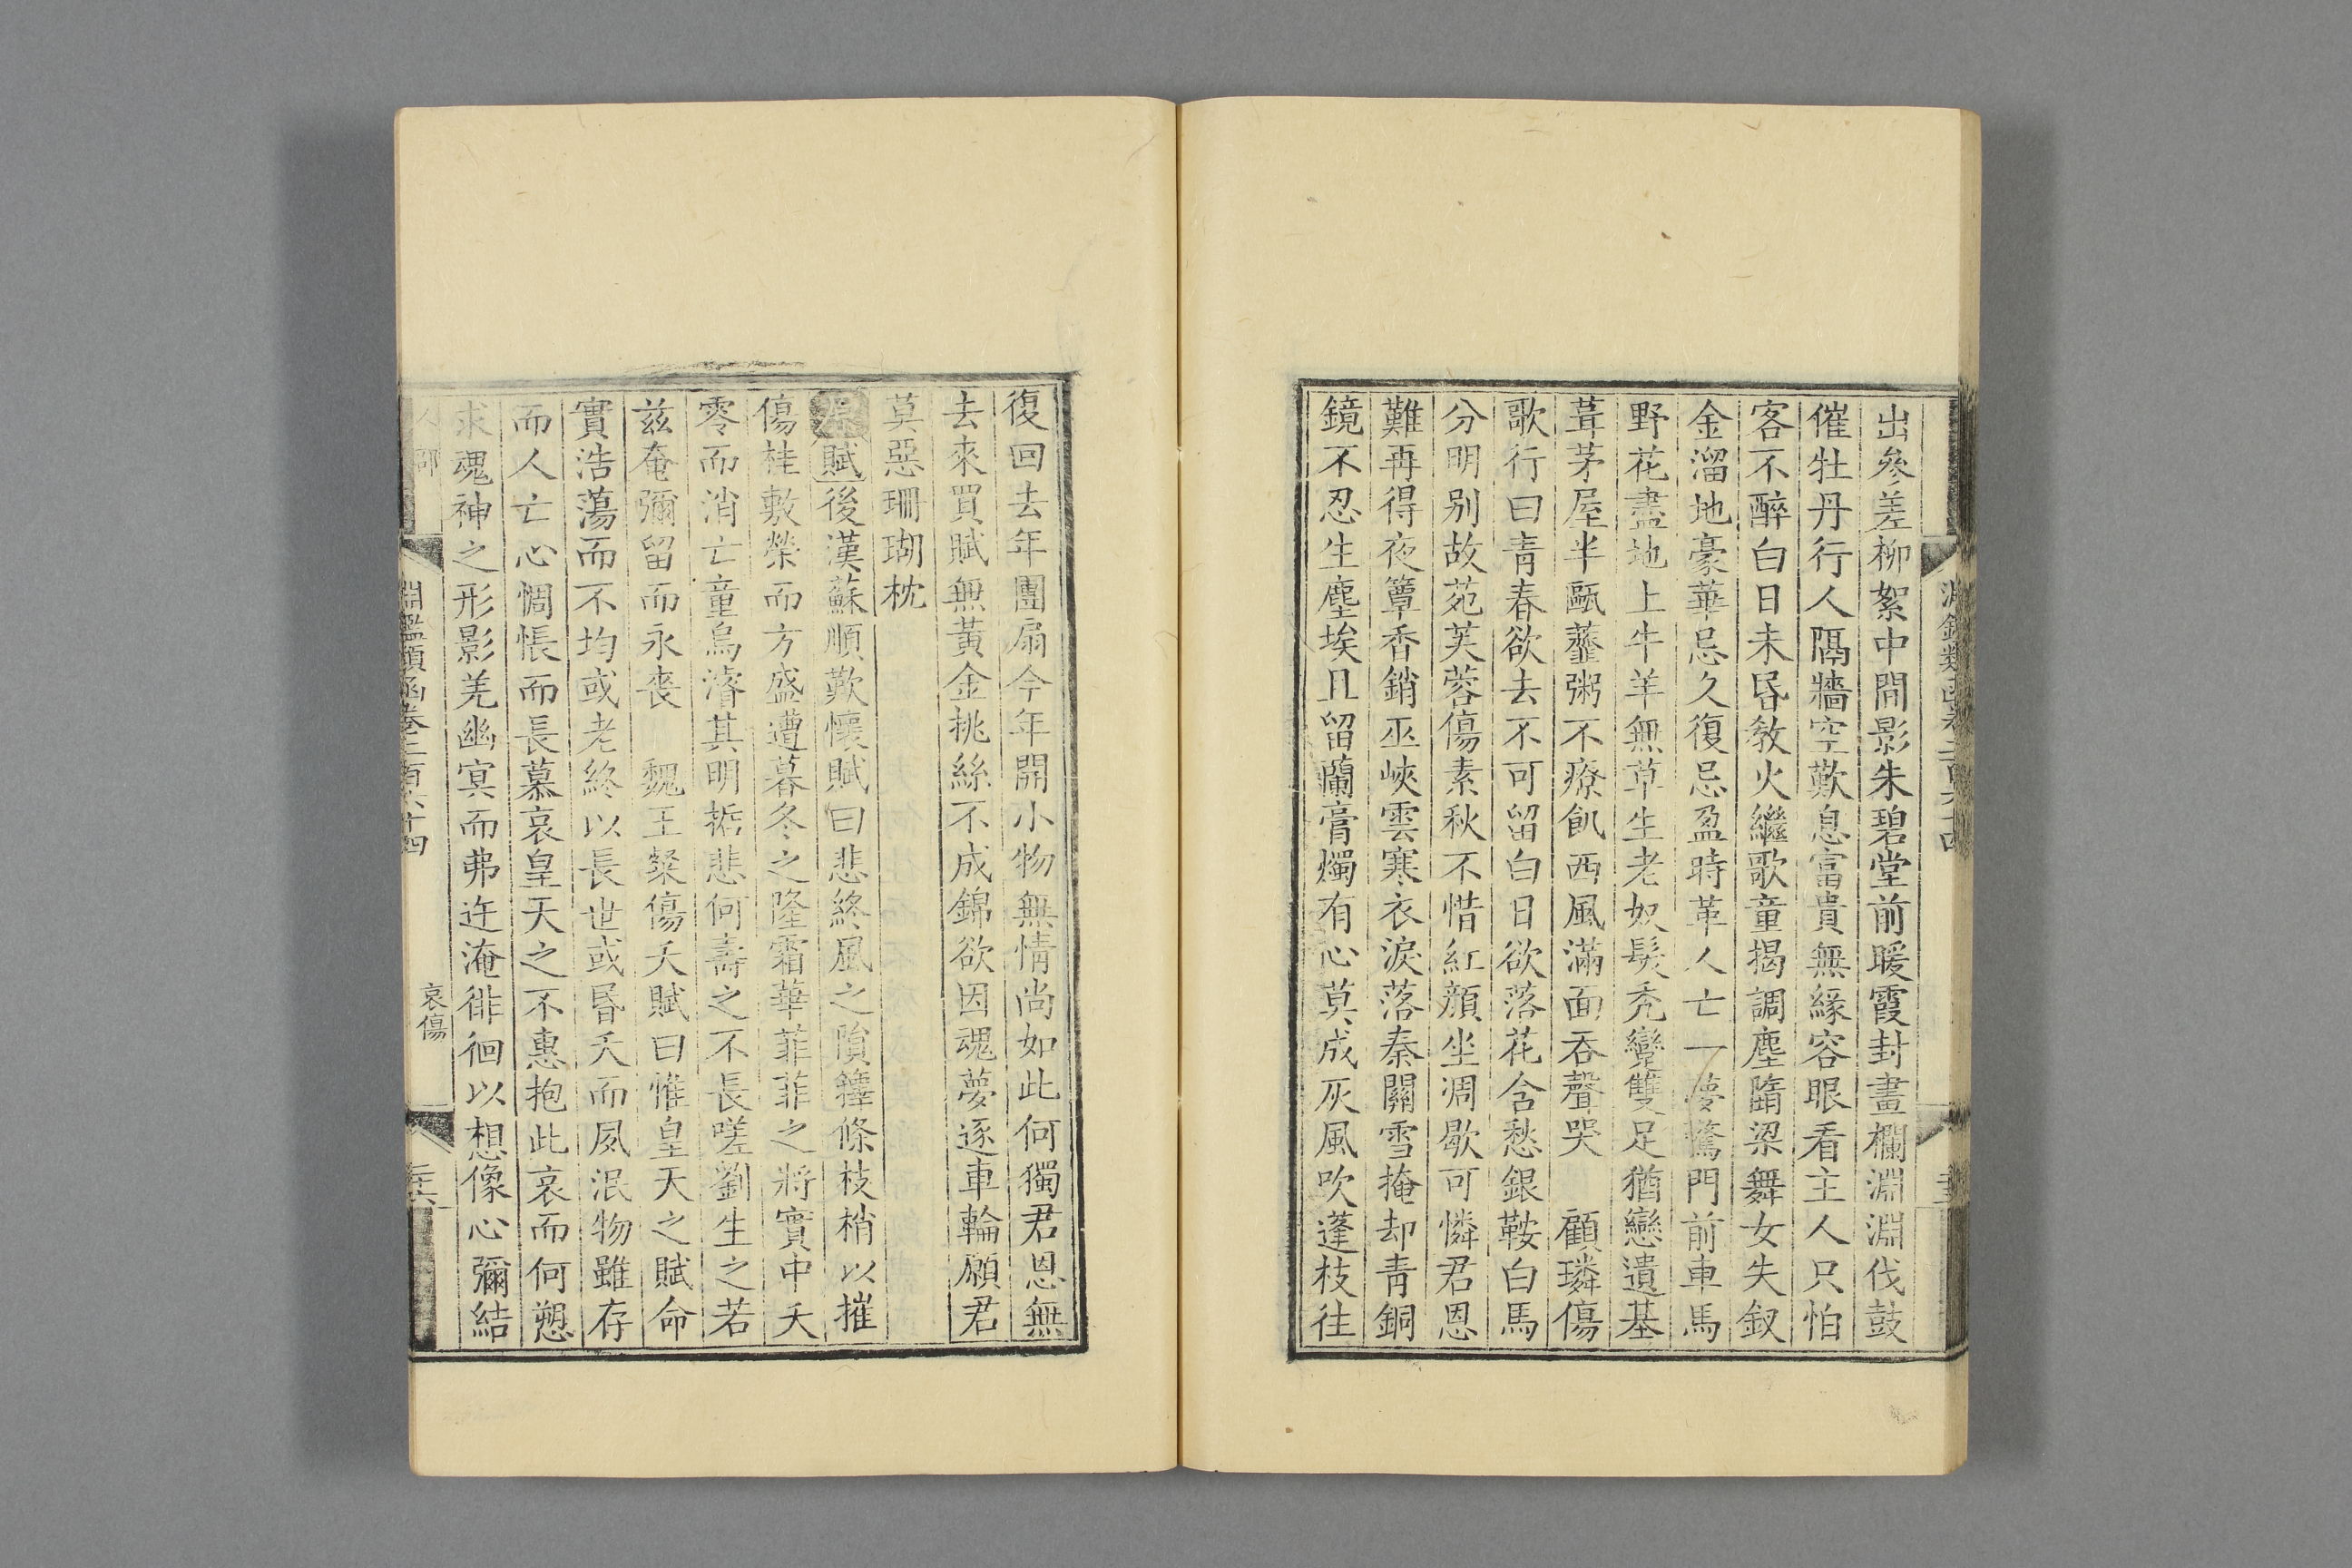 出參差柳絮中間影朱碧堂前暖霞封畫欄淵淵伐鼓
催牡丹行人隔牆空歎息富貴無緣容眼看主人只怕
客不醉白日未昏教火繼歌童揭調塵隨梁舞女失釵
金溜地豪華忌久復忌盈時革人亡一夢驚門前車馬
野花盡地上牛羊無草生老奴髮秃攣雙足猶戀遺基
葺茅屋半甌虀粥不療飢西風滿面吞聲哭　顧璘傷
歌行曰青春欲去不可留白日欲落花含愁銀鞍白馬
分明别故苑芙蓉傷素秋不惜紅顏坐凋歇可憐君恩
難再得夜簟香銷巫峽雲寒衣淚落秦關雪掩却青銅
鏡不忍生塵埃且留蘭膏燭有心莫成灰風吹蓬枝往
復回去年團扇今年開小物無情尚如此何獨君恩無
去來買賦無黃金挑絲不成錦欲因魂夢逐車輪願君
莫惡珊瑚枕
賦後漢蘇順歎懷賦曰悲終風之隕籜條枝梢以摧
傷桂敷榮而方盛遭暮冬之隆霜華菲菲之將實中夭
零而消亡童烏濬其明哲悲何壽之不長嗟劉生之若
兹奄彌留而永喪　魏王粲傷夭賦曰惟皇天之賦命
實浩蕩而不均或老終以長世或昏夭而夙泯物雖存
而人亡心惆悵而長慕哀皇天之不惠抱此哀而何愬
求魂神之形影羌幽冥而弗迕淹徘徊以想像心彌結
淵鑑類函卷二百六十四
哀傷